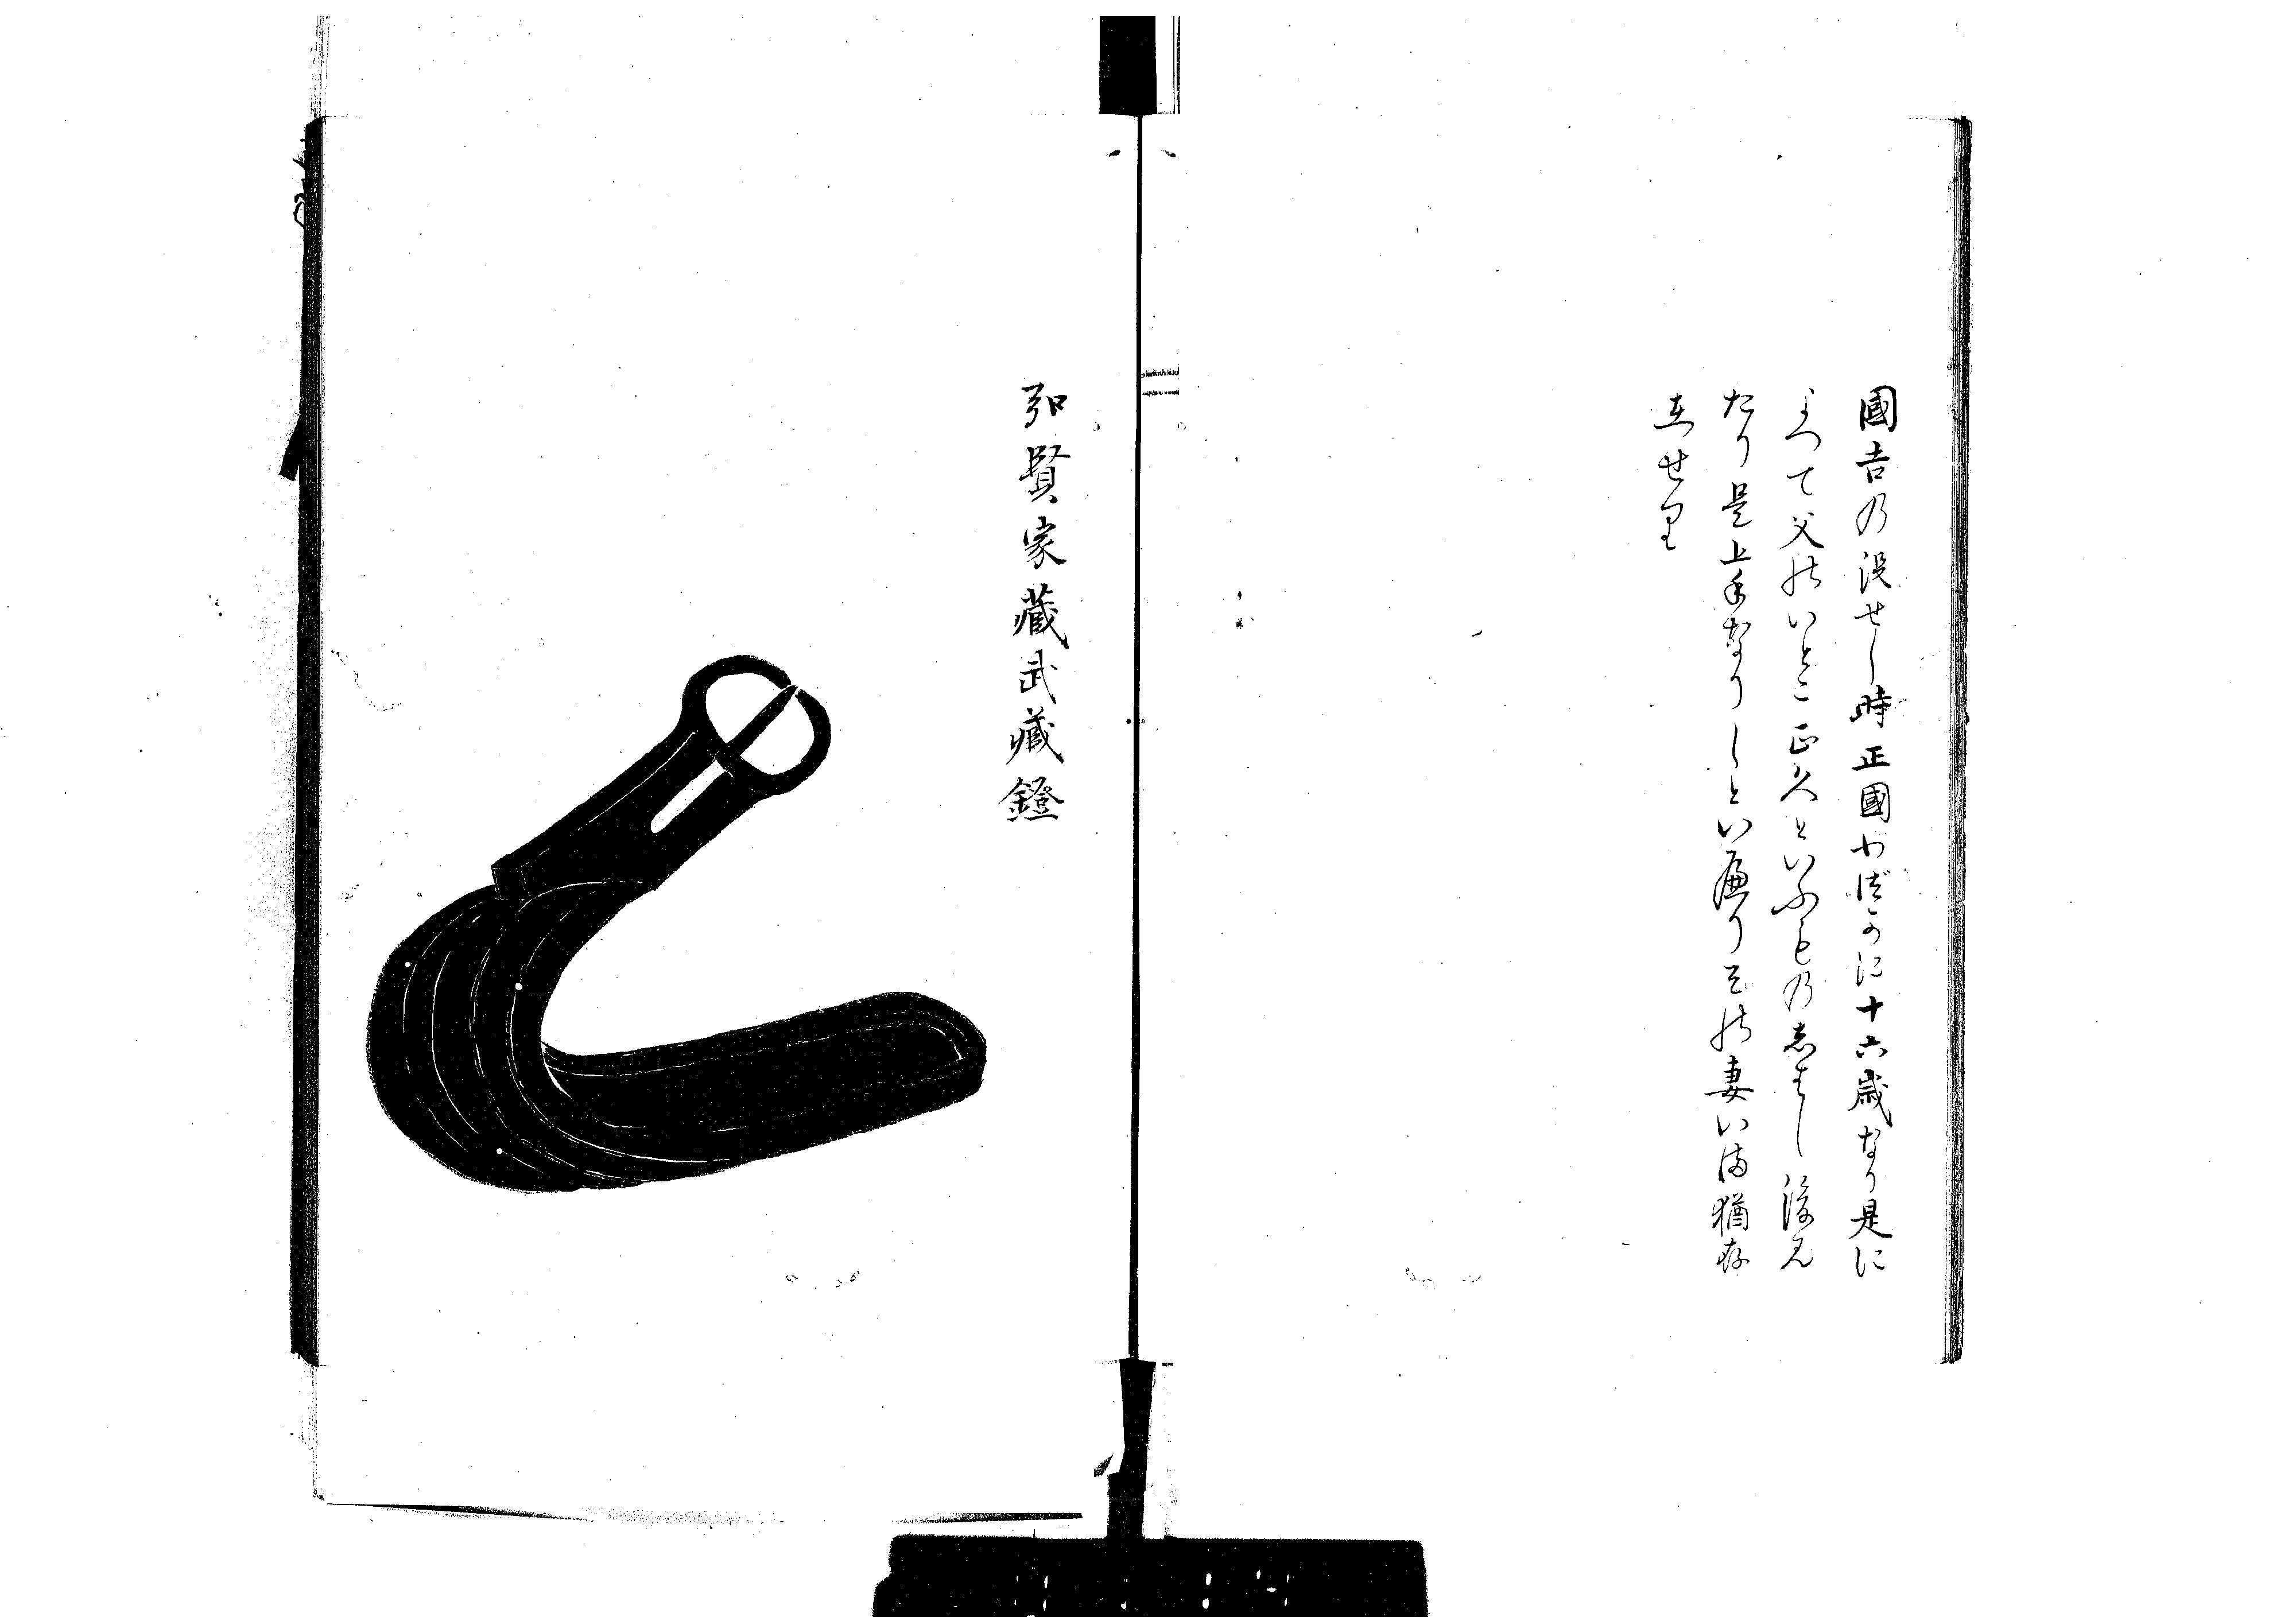 國吉乃没せし時正國わづかに十六歳なり是に
よつて父のいとこ正久といふもの志ばし後見
たり是上手なりしといへり其妻いま猶存
在せり
弘賢家藏武藏鐙